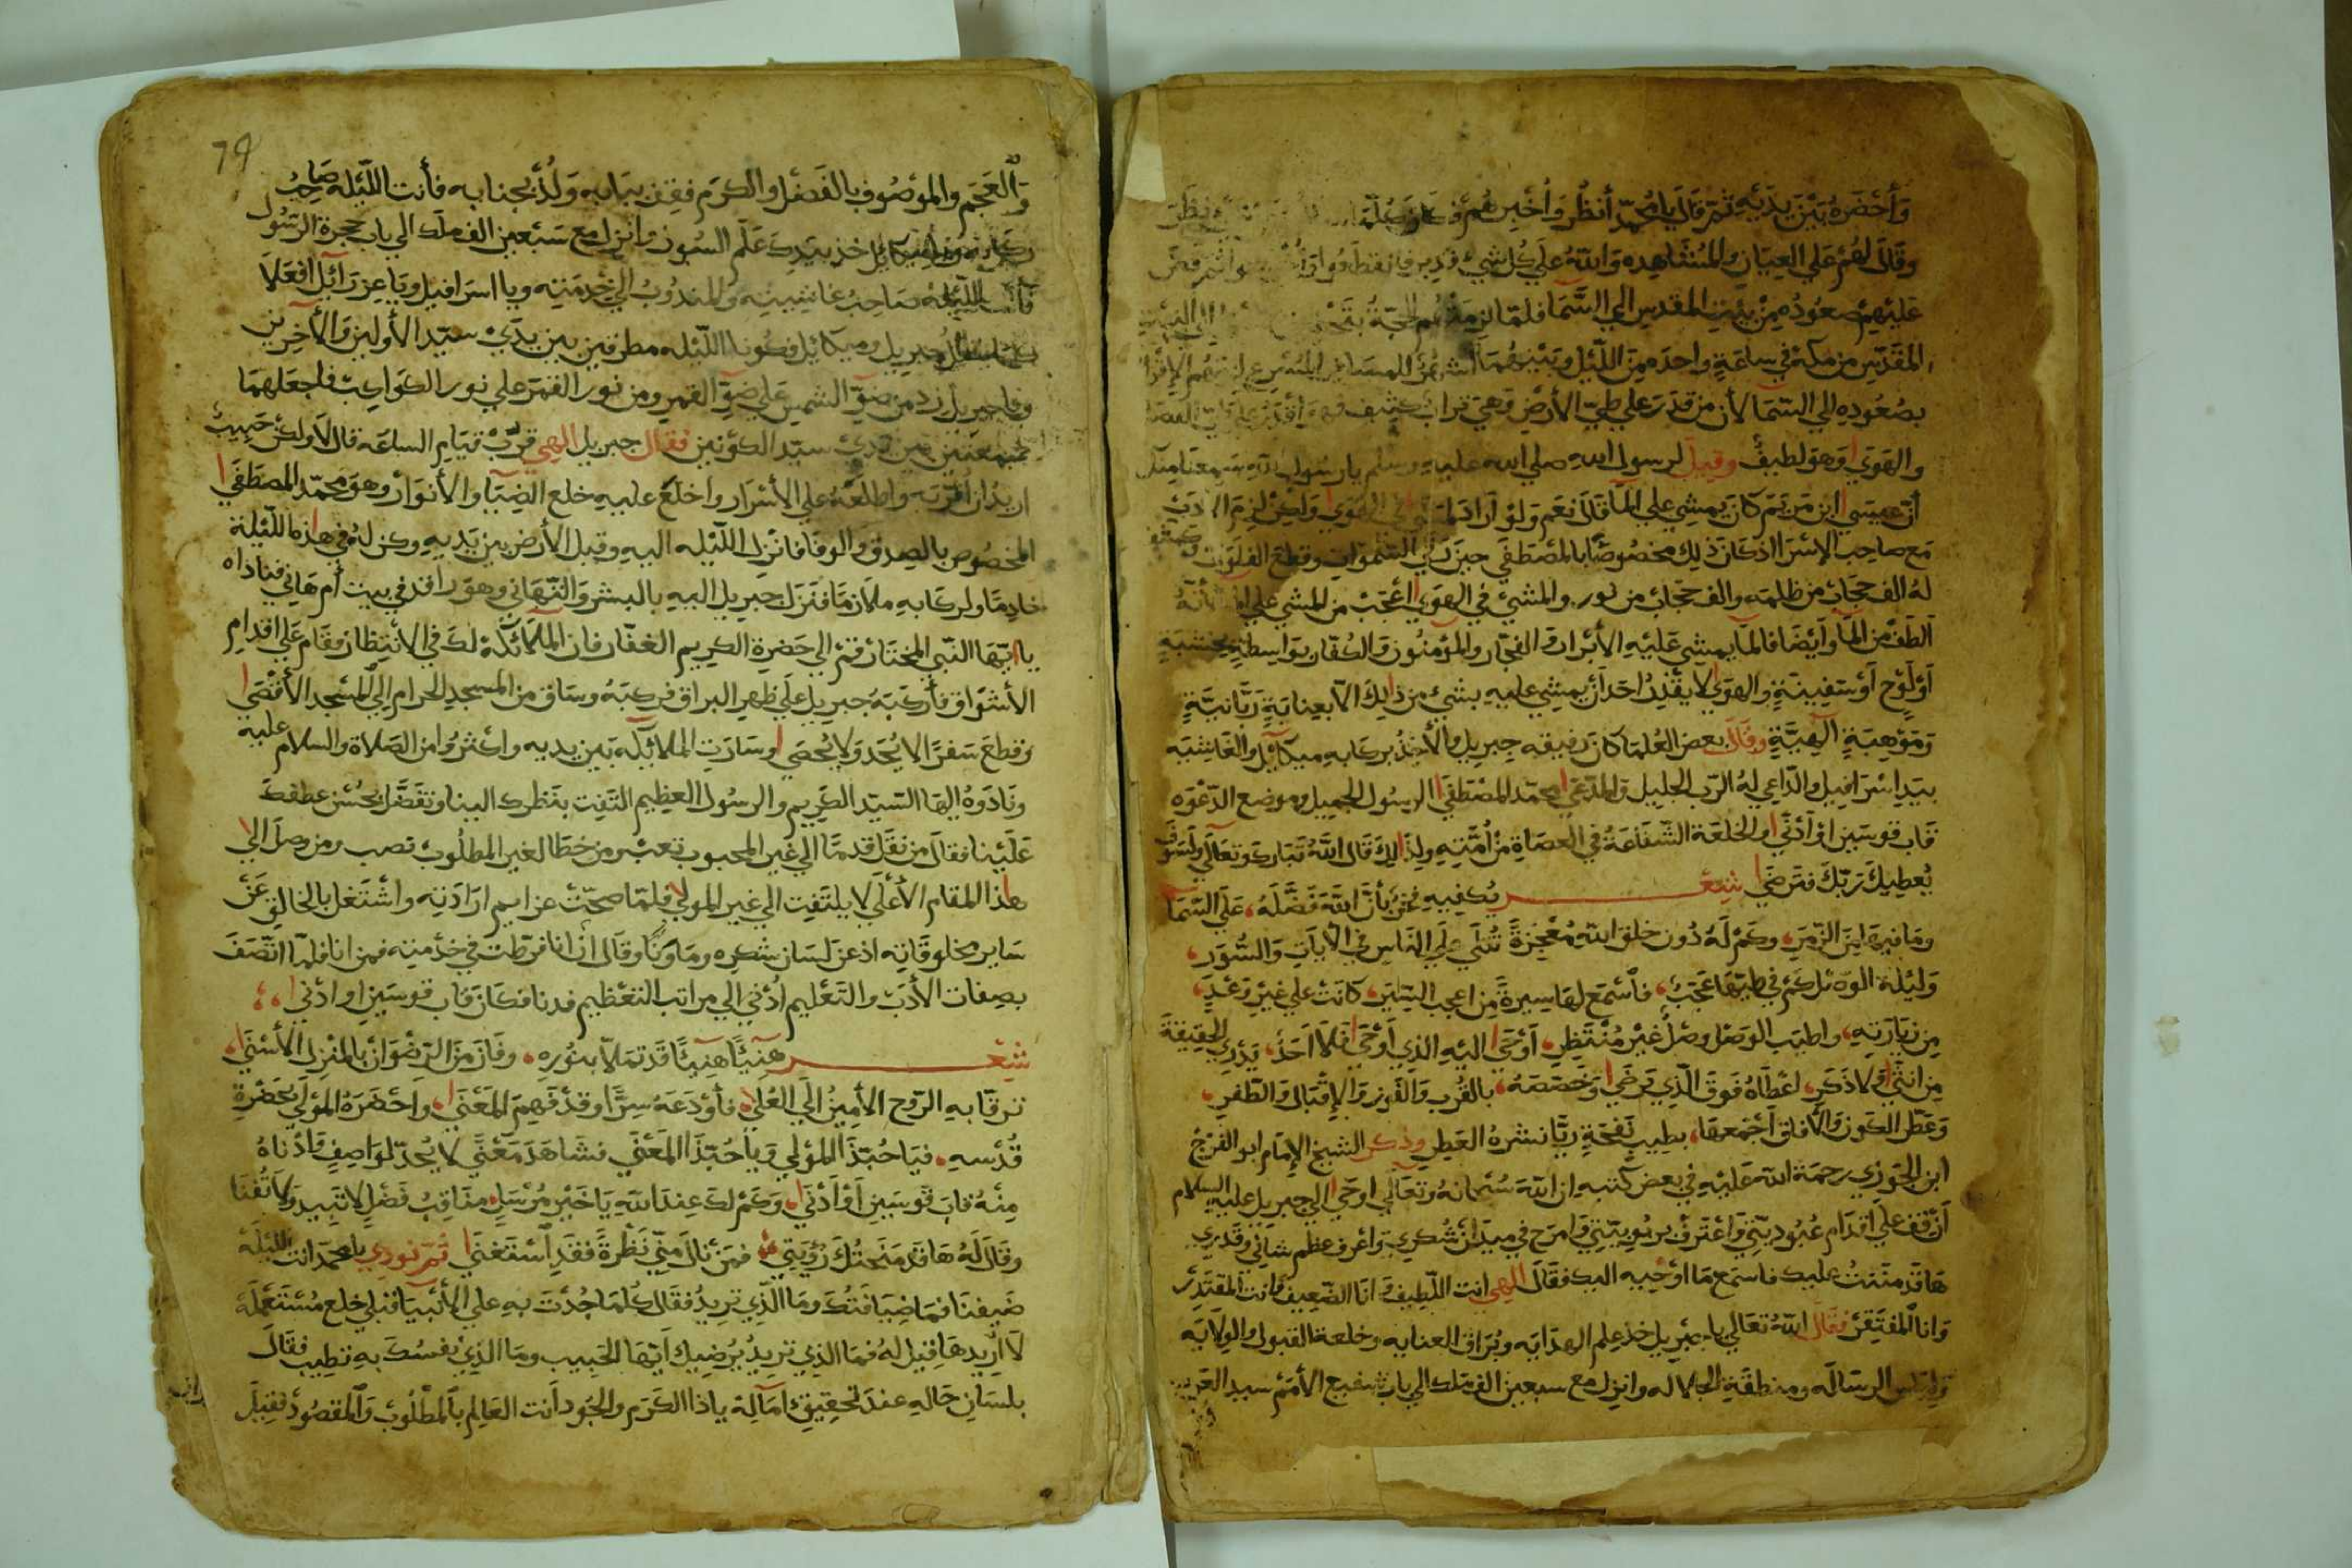 وَأحْضَرهُ بَيْنَ يَدَيْهِ ثمّ قالَ يا محمّد أنظُر وَأخْبِرهُم
وقالَ لهُم علي العِيَانِ والمُشَاهِده وَاللهُ علي كُل شيءٍ قدِير
عَليْهِمْ صعُودُه مِنْ بيْتِ المقدسِ الي السَّمَا فلمّا لزِمَتْهُم الحجّةُ
المقدّسِ من مكة في ساعَةٍ واحدَه مِنَ اللّيْل وَبَيْنهُمَا أشهُرٌ للمسَافِر
بصُعُودِهِ الي السّمَا لأن من قدرَ علي طيّ الأرْضِ وَهي تراب كثيف
والهَوَي وَهوَ لطيفٌ وقيلَ لرسول اللهِ صلي الله عليهِ وسلم يارسُول الله سَمِعْنَا
أنّ عيسَي ابن مَريَم كانَ يمشِي علي المَا قالَ نعَم وَلوْ أرَادَ الهَوَي وَلكِن لزِمَ الادَبَ
مَع صاحِب الإسْرَا اذ كانَ ذلِكَ مخصُوصًا بالمصْطفَي حِينَ رَقي السّموَاتِ وقطعَ الفلَوَات
لهُ الف حجَاب من ظلمَه والف حجَاب من نور والمشْي في الهَوَي أعْجَبُ من المشي علي
ألطفُ من المَا وَأيْضًا فالمَا يمشِي عَليْهِ الأبْرار وَ الفجّار والمؤمنُون وَ الكفّار بوَاسِطةِ خشبَةٍ
أوْ لَوْحٍ أوْ سَفِينَةٍ والهوَي لا يقْدِرُ احَد أن يمشِي عليهِ بشيءٍ من ذلِكَ الّا بعِنايَةٍ رَبَّانيَّةٍ
وَمَوْهِبَةٍ الهيَّةٍ وقالَ بعض العُلمَا كانَ رفِيقه جبريل والأخِذُ بركابه ميكائيل والغاشيَه
بيَدِ اسْرَافيل والدّاعِي لهُ الرّب الجليل وَ المدّعي محمّد المصْطفَي الرسُول الجميل وموضع الدّعْوَه
قاب قوسَين اوْ أدْنَي والخلعَة الشّفَاعَةُ في العصَاةِ منْ أُمّتِهِ ولِذَالِكَ قالَ اللهُ تبَارَك وتعَالَي وَلسَوْفَ
يُعطِيكَ رَبّكَ فترضَي شِعْر يكفيهِ فخرًا بأنّ اللهَ فضَّلَهُ، عَلي السّمَا
ومَا فيهَا مِنَ الزّمَرِ، وكَمْ لَهُ دُون خلق اللهِ مُعْجِزةً تُتْلَي عَلي النّاس في الآيَاتِ وَالسُّوَر،
وَليْلة الوَصْل كمْ في طيّهَا عَجَبٌ، فأسْمَع لهَا سِيرةً مِن اعجب السّيَرِ، كانَتْ علي غيْرِ وَعْدٍ
مِن زيَارَتِهِ، واطيَب الوَصْل وصْلٌ غيْرَ مُنْتظِرِ، أوْحَي اليْهِ الذي أوْحَي فلا أحَدٌ، يَدْرِي الحقِيقةَ
مِن انثَي وَلا ذكَرِ، اعْطاهُ فوقَ الّذي يَرضَي وَخصّصَهُ، بالقُرْبِ وَالفَوْزِ وَالإقْبَالِ وَالظّفرِ،
وَعَطّر الكَونَ والأفاق أجْمَعهَا، بطِيبِ نَفْحَةِ ريّا نشْرهُ العَطِرِ وذكر الشيخ الإمَام ابو الفَرَجْ
ابن الجَوْزي رحمَة الله عَليْهِ في بعض كتبِهِ ان اللهَ سُبْحانهُ وتعَالَي اوحَي الي جبريل عليهِ السلام
أنْ قِف عَلي اقدَام عُبُوديّتِي وَاعْتَرِفْ برُبُوبيّتِي وَامرَح في ميدَان شُكرِي وَاعْرف عظم شاني وقدْري
هَا قد مَننتُ عليك فاسمَع مَا اوحِيه اليك فقالَ الهي انت اللّطِيف وَ انَا الضّعِيف وانت المقتَدِر
وَانا المفتَقِرْ فقَالَ اللهُ تعَالَي ياجبْرِيل خذ علم الهدَايَه وبُرَاق العنايَه وخلعَة القبُول والولايَه
وَلِبَاس الرسَالَه ومنطقَةِ الجَلاله وانزل مع سبعين الف ملك الي باب شفيع الأمَمْ سيد العَرَب
79
وَالعَجَم والموْصُوف بالفَضْل والكرَم فقِف ببَابهِ وَلُذْ بجنَابهِ فأنت اللّيْله صَاحِبُ
ركابه ويا ميكائيل خذ بيَدِكَ عَلَم القبُول وَانزل مع سَبْعين الف ملك الي باب حجرة الرّسُول
فأنت اللّيْلة صَاحِبُ غاشيتِه والمندُوب الي خِدْمَتِه ويا اسرَافيل ويَا عِزرَائيل افعَلا
جبريل وميكائيل وكونا اللّيْله مطرقين بين يدَيْ سيّد الأوّلين وَالأخِرِين
ويا جبريل زد من ضوّ الشمس علي ضوّ القمر ومن نور القمَر علي نور الكواكِب فاجعَلهمَا
شمعَتين بين يدَيْ سيّد الكونين فقال جبريل الهي قرُبْ قيَام السّاعَه قال لا ولكنْ حَبِيبٌ
اريدُ ان أقرّبَه واطلعَهُ علي الأسْرَار واخلع عليهِ خلع الضِّيَا والأنوَار وهوَ محمّد المصْطَفَي
المخصُوص بالصِدق والوفا فانزل اللّيْله اليهِ وقبل الأرض بين يَديهِ وكن لهُ في هذهِ اللّيْلة
خادِمًا ولركابهِ ملازمًا فنزل جبريل اليهِ بالبشْر وَالتّهَاني وهوَ راقد في بيت أم هَاني فنادَاه
ياأيّهَا النّبي المختَارْ قُمْ الي حَضرة الكريم الغفّار فان الملائكَة لكَ في الانتِظار فقَام عَلي اقدَام
الأشوَاق فأركبَهُ جبريل علي ظهر البراق فركبَهُ وسَاق من المسْجد الحرام الي المسْجد الأقْصَي
وقطعَ سَفرًا لا يُحَد وَلا يُحْصَي وسَارَتِ الملائكَه بَين يديه واكثَرُوا من الصّلاة والسلام عليه
ونَادَوهُ ايهَا السّيّد الكَريم والرسُول العظِيم التَفِت بنَظرِك الينا وتفضّل بحُسْن عطفِكَ
عَليْنا فقَالَ من نقَل قدمًا الي غير المحبوب تعب ومن خطا لغير المطلُوب نصب ومن وصل الي
هذا المقام الأعْلي لا يلتَفِت الي غير المولَي فلمّا صحّت عزايم ارَادَتِه واشتغل بالخالِق عَنْ
سَاير مخلوقاتِه اذعن لسَان شكرِه ومَا وَنَا وقالَ ان انا فرّطت في خِدْمتِه فمن انا فلمّا اتّصَفَ
بصِفات الأدَبْ والتّعْليم أُدْنِي الي مراتب التّعْظيم فدنا فكانَ قاب قوسَينِ او أدْني
شِعْر هَنيئًا هَنيئًا قدْ تمَلّا بنُورِهِ، وفَازَ مِنَ الرّضْوَان بالمنْزِل الأسْنَي،
ترقّا بهِ الرّوح الأمِين الي العُلي، فأوْدَعَهُ سِرًّا وقدْ فَهِمَ المَعْنَي، وَاحْضَرهُ المَوْلي بحَضْرةِ
قُدْسِهِ، فيَا حَبّذَا المَوْلي وَيا حَبّذَا المَعْنَي فشَاهَدَ مَعْنًي لا يُحَدّ لوَاصِفٍ وَأدْناهُ
مِنْهُ قابَ قَوسَينِ أوْ أدْنَي، وَكمْ لكَ عِندَ اللهِ يَا خَيْر مُرْسَلٍ مناقِبُ فَضْلٍ لا تَبِيد وَلا تَفْنَا
وقالَ لَهُ هَا قدْ مَنحتُكَ رُؤيَتِي، فمَنْ نالَ مِنّي نَظْرةً فقَدِ اسْتَغْنَي ثمّ نودِي يامحمدَ انت اللّيْلَة
ضَيفنَا فمَا ضِيَافتُكَ ومَا الّذِي تريدُ فقَالَ كُلمَا جُدْتَ بهِ علي الأنْبيَا قبلي خلع مُسْتَعْمَلَة
لا اُريدهَا فقيل لهُ فمَا الذِي تريدُ يُرضِيكَ أيّهَا الحَبِيب ومَا الذِي نفسُكَ بهِ تطِيب فقَالَ
بلسَانِ حَالِهِ عندَ تحقِيقِ امَالِهْ ياذا الكَرَم والجُود أنت العَالِم بالمطْلُوب وَالمقصُودْ فقِيلَ